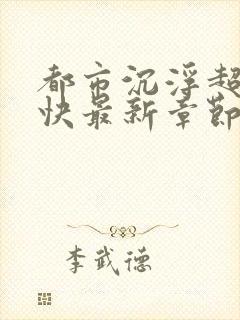 都市沉浮超
快最新章節
李武德